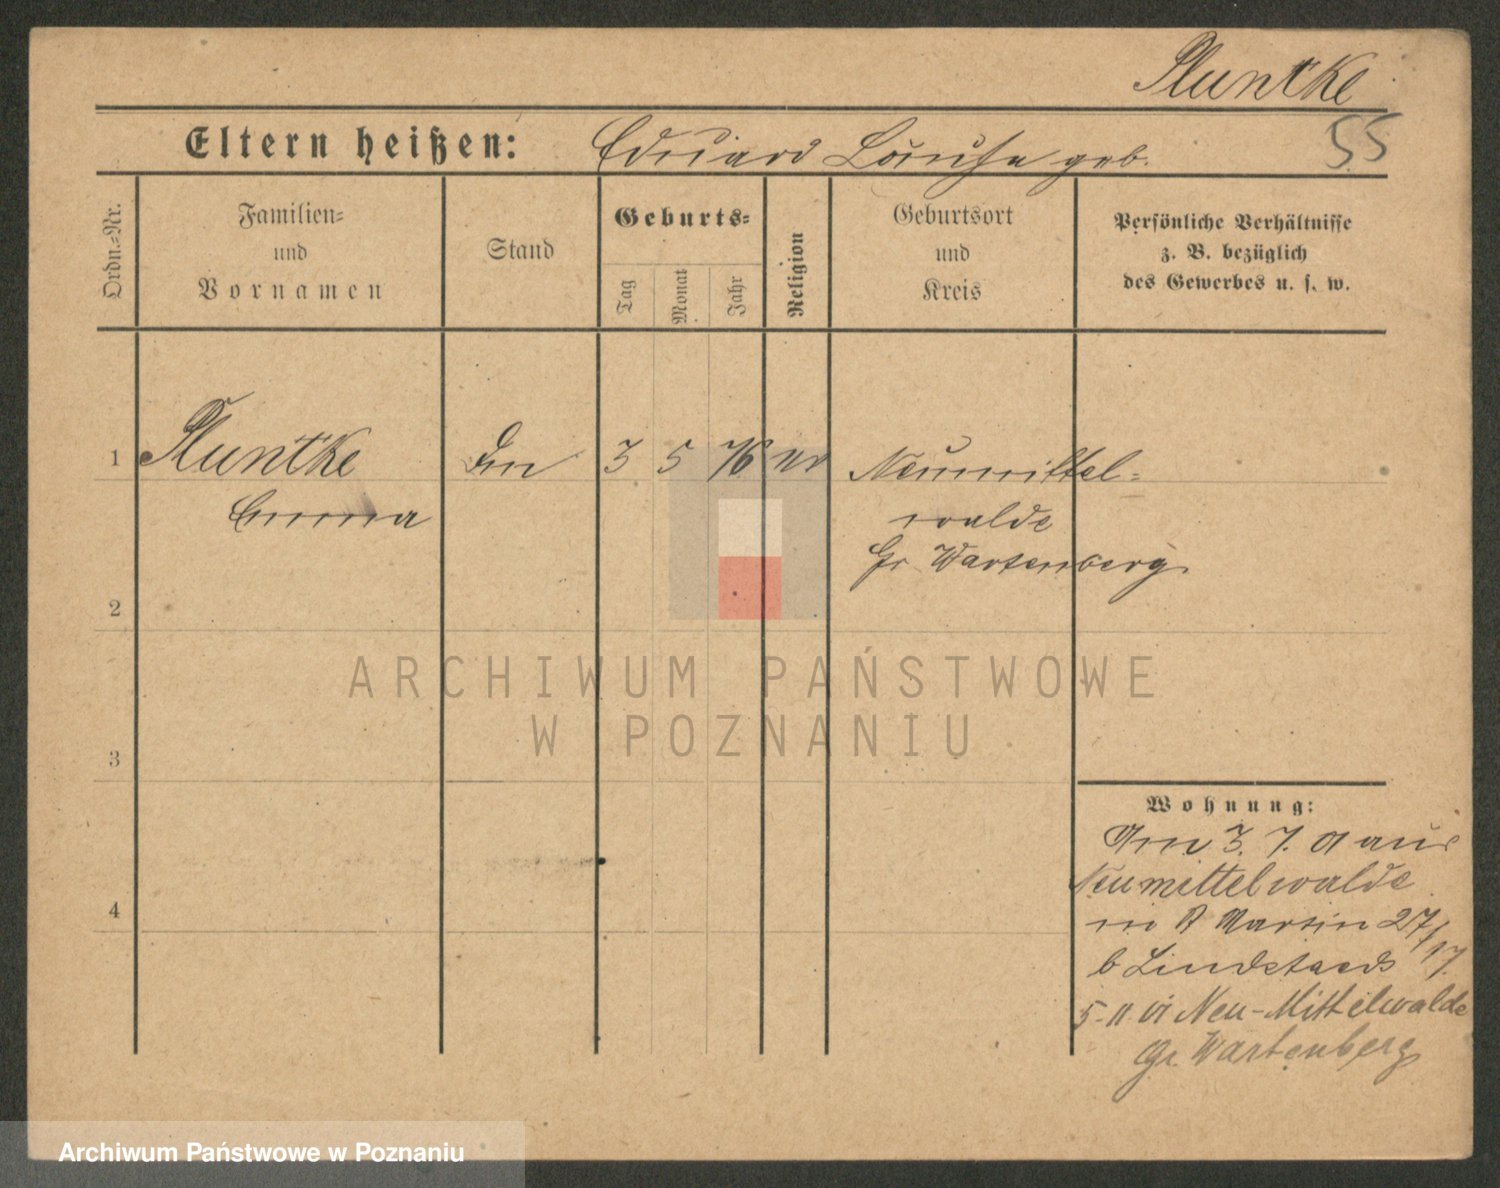 Pluntke
55
Eltern heißen: Eduard Louise geb.
Ordn.-Nr.
Familien-
und
Vornamen
Stand
Geburts-
Tag
Monat
Jahr
Religion
Geburtsort
und
Kreis
Persönliche Verhältnisse
z. B. bezüglich
des Gewerbes u. s. w.
1 Pluntke 3 5 76 Neumittel-
Emma walde
Gr Wartenberg
2
3
4
Wohnung:
Am 3. 7. 01 aus
Neumittelwalde
in St Martin 27/
b 17.
5-11 01 Neu-Mittelwalde
Gr. Wartenberg
ARCHIWUM PAŃSTWOWE
W POZNANIU
Archiwum Państwowe w Poznaniu